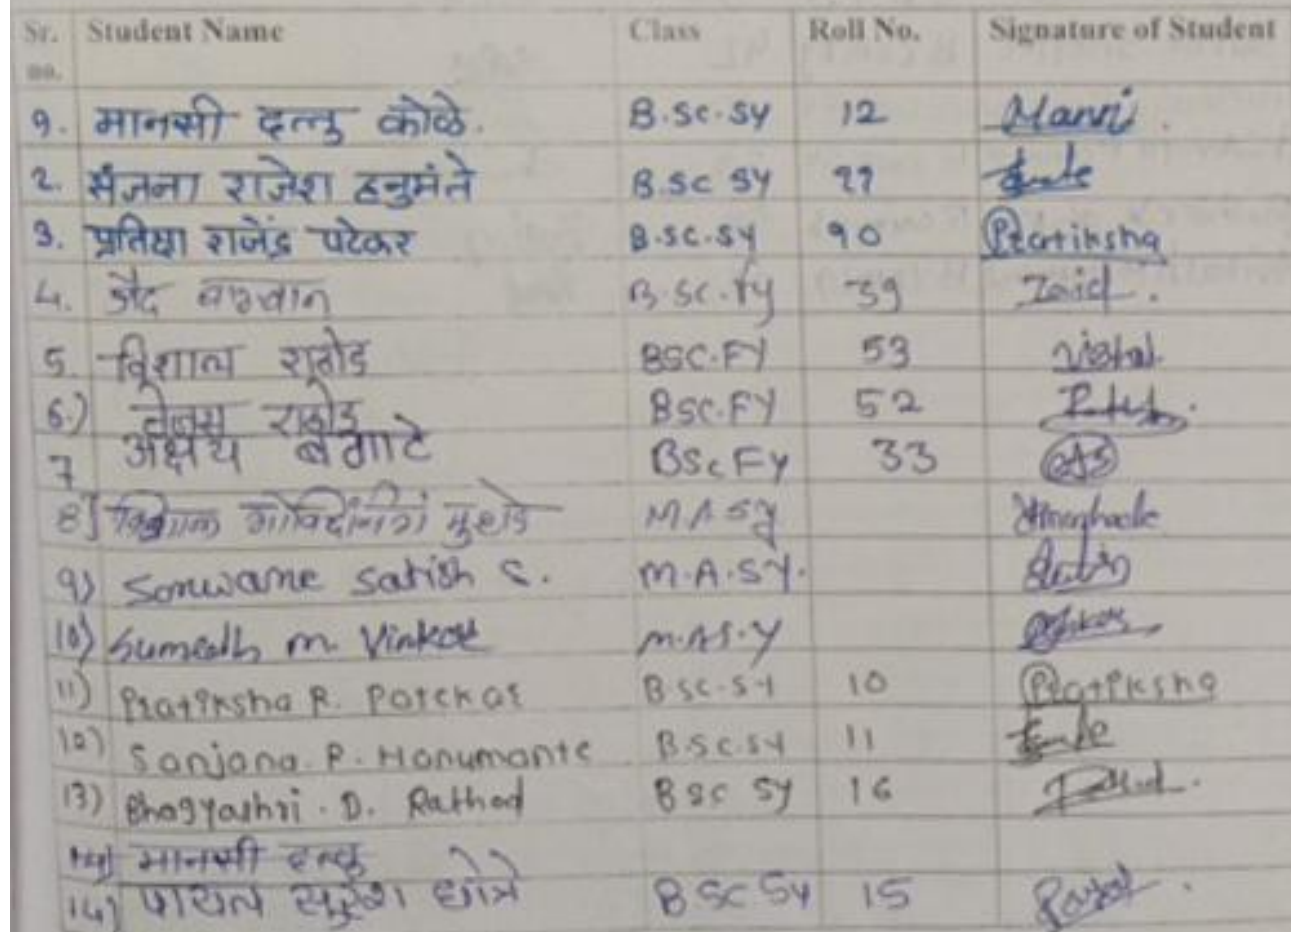 Sr. no. Student Name Class Roll No. Signature of Student
१. मानसी दत्तु कोळे. B.Sc.Sy 12 Mansi
2. संजना राजेश हनुमंते B.Sc Sy ११
3. प्रतिक्षा राजेंद्र पटेकर B.Sc.Sy १० Pratiksha
4. जैद बागवान B.Sc.Fy 39 Zaid.
5. विशाल राठोड BSC.FY 53 Vishal.
6.) तेजस राठोड BSC.FY 52
7 अक्षय बनगाटे BSc Fy 33
8] M.A Sy
9) Sonwane Satish S. M.A.SY.
10) Sumedh M. Vinkar M.A S.Y
11) Pratiksha R. Patekar B.Sc.Sy 10 Pratiksha
12) Sanjana. R. Hanumante B.Sc.Sy 11
13) Bhagyashri. D. Rathod B Sc Sy 16
14) मानसी दत्तु
14) पायल सुरेश धोत्रे B Sc Sy 15 Payal